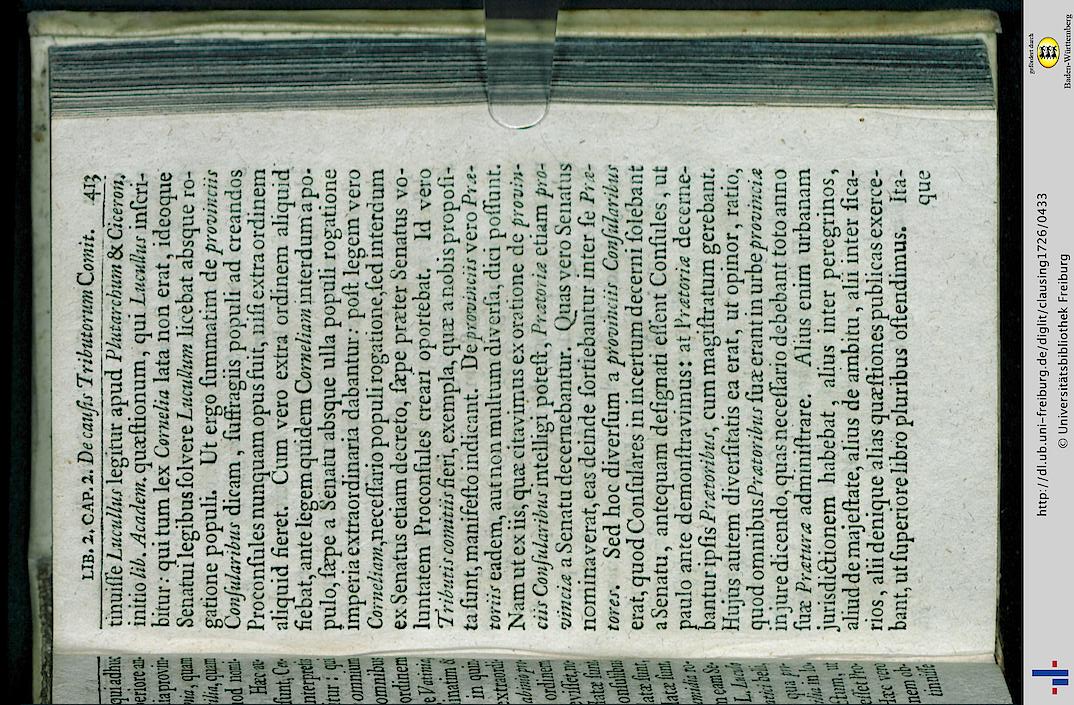 LIB. 2. CAP. 2. De causis Tributorum Comit. 413
timuisse Lucullus legitur apud Plutarchum & Ciceron.
initio lib. Academ. quæstionum, qui Lucullus inscri-
bitur: qui tum lex Cornelia lata non erat, ideoque
Senatui legibus solvere Lucullum licebat absque ro-
gatione populi. Ut ergo summatim de provinciis
Consularibus dicam, suffragiis populi ad creandos
Proconsules nunquam opus fuit, nisi extra ordinem
aliquid fieret. Cum vero extra ordinem aliquid
fiebat, ante legem quidem Corneliam interdum a po-
pulo, sæpe a Senatu absque ulla populi rogatione
imperia extraordinaria dabantur: post legem vero
Corneliam, necessario populi rogatione, sed interdum
ex Senatus etiam decreto, sæpe præter Senatus vo-
luntatem Proconsules creari oportebat. Id vero
Tributis comitiis fieri, exempla, quæ a nobis proposi-
ta sunt, manifesto indicant. De provinciis vero Præ-
toriis eadem, aut non multum diversa, dici possunt.
Nam ut ex iis, quæ citavimus ex oratione de provin-
ciis Consularibus intelligi potest, Prætoriæ etiam pro-
vinciæ a Senatu decernebantur. Quas vero Senatus
nominaverat, eas deinde sortiebantur inter se Præ-
tores. Sed hoc diversum a provinciis Consularibus
erat, quod Consulares in incertum decerni solebant
a Senatu, antequam designati essent Consules, ut
paulo ante demonstravimus: at Prætoriæ decerne-
bantur ipsis Prætoribus, cum magistratum gerebant.
Hujus autem diversitatis ea erat, ut opinor, ratio,
quod omnibus Prætoribus suæ erant in urbe provinciæ
in jure dicendo, quas necessario debebant toto anno
suæ Præturæ administrare. Alius enim urbanam
jurisdictionem habebat, alius inter peregrinos,
alius de majestate, alius de ambitu, alii inter sica-
rios, alii denique alias quæstiones publicas exerce-
bant, ut superiore libro pluribus ostendimus. Ita-
que
http://dl.ub.uni-freiburg.de/diglit/clausing1726/0433
© Universitätsbibliothek Freiburg
gefördert durch
Baden-Württemberg